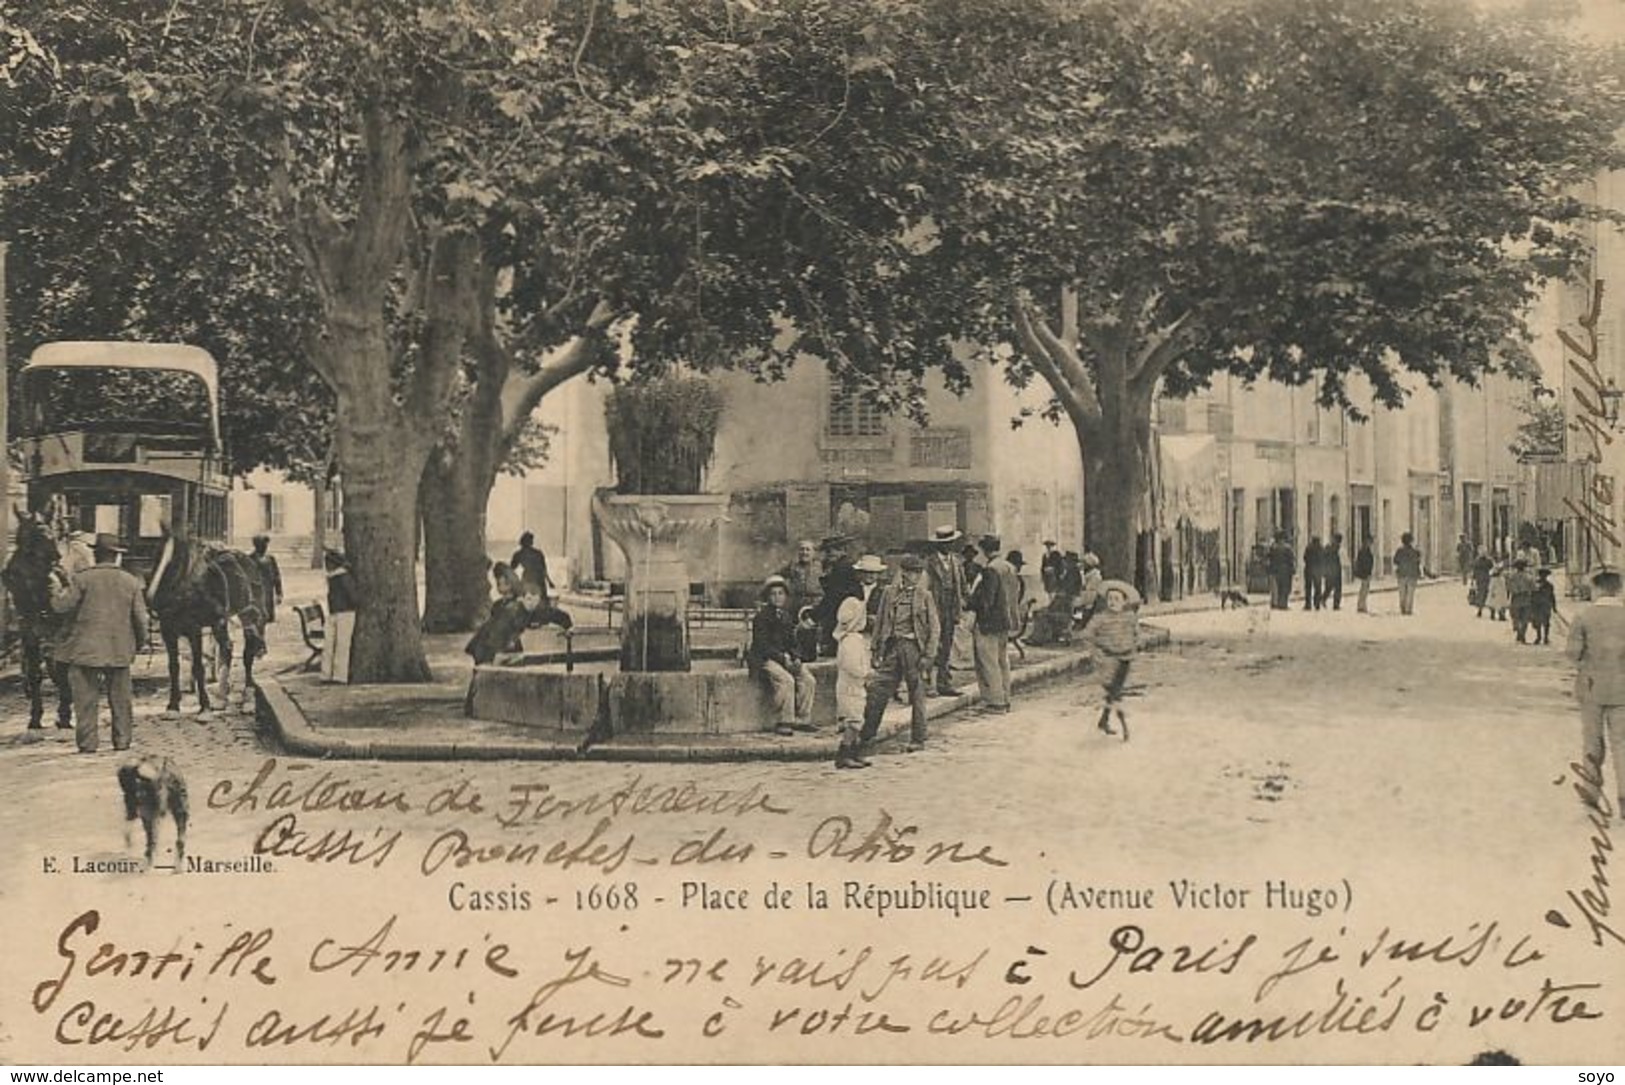 château de Fontcreuse
Cassis Bouches-du-Rhône.
E. Lacour. — Marseille.
Cassis - 1668 - Place de la République — (Avenue Victor Hugo)
Gentille Annie je ne vais pas à Paris je suis à
Cassis aussi je pense à votre collection amitiés à votre
famille
www.delcampe.net
soyo